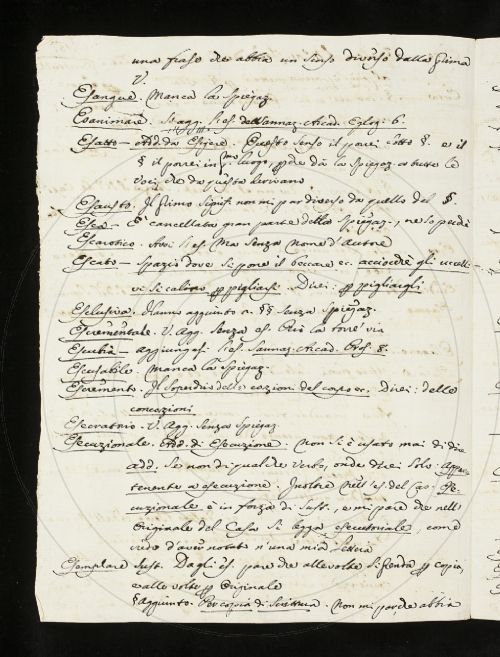 una frase che abbia un senso diverso dalla prima
V.
Esangue. Manca la Spiegaz.
Esanimare. Si agg. l'es. del Sannaz. Arcad. Eglog. 6.
Esatto — Add. da Esigere. Questo senso il porrei sotto §. e il
§ il porrei in p.mo luogo, che dà la Spiegaz. a tutte le
voci che da questa derivano
Esausto. Il primo signif. non mi par diverso da quello del §.
Esca — È cancellata gran parte della Spiegaz., nè so perchè
Escarotico. Avvi l'es. Ma senza nome d'autore
Escato — Spazio dove si pone il beccare ec. acciocchè gli uccelli
vi si calino p pigliarsi. Direi: p pigliargli
Esclusiva. Hanno aggiunto n. §§ senza Spiegaz.
Escrementale. V. Agg. senza es. Più la torre' via
Escubia — aggiungesi l'es. Sannaz. Arcad. Pros. 8.
Escusabile. Manca la Spiegaz.
Escremento. Il Superfluo delle cozioni del corpo ec. Direi: delle
concozioni
Esecratorio. V. Agg. senza Spiegaz.
Esecuzionale. Add. di Esecuzione. Non si è usato mai di dire
add. se non di qualche verbo, onde direi solo: Appar-
tenente a esecuzione. Inoltre nell'es. del Cas. Ese-
cuzionale è in forza di Sust., e mi pare che nell'
Originale del Casa si legga esecutoriale, come
credo d'aver notato n'una mia Lettera
Esemplare Sust. Dagli es. pare che alle volte si prenda p copia,
e alle volte p Originale
§ aggiunto. Per copia di Scrittura. Non mi par che abbia